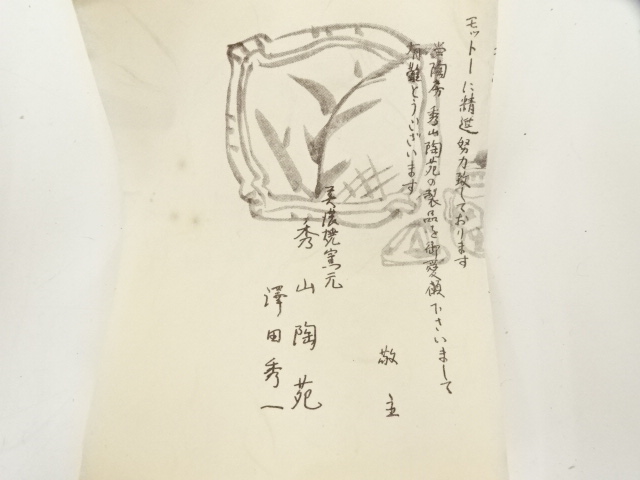 モットーに精進努力致しております
当陶房 秀山陶苑の製品を御愛顧下さいまして
有難とうございます
敬主
美濃焼窯元
秀山陶苑
澤田秀一